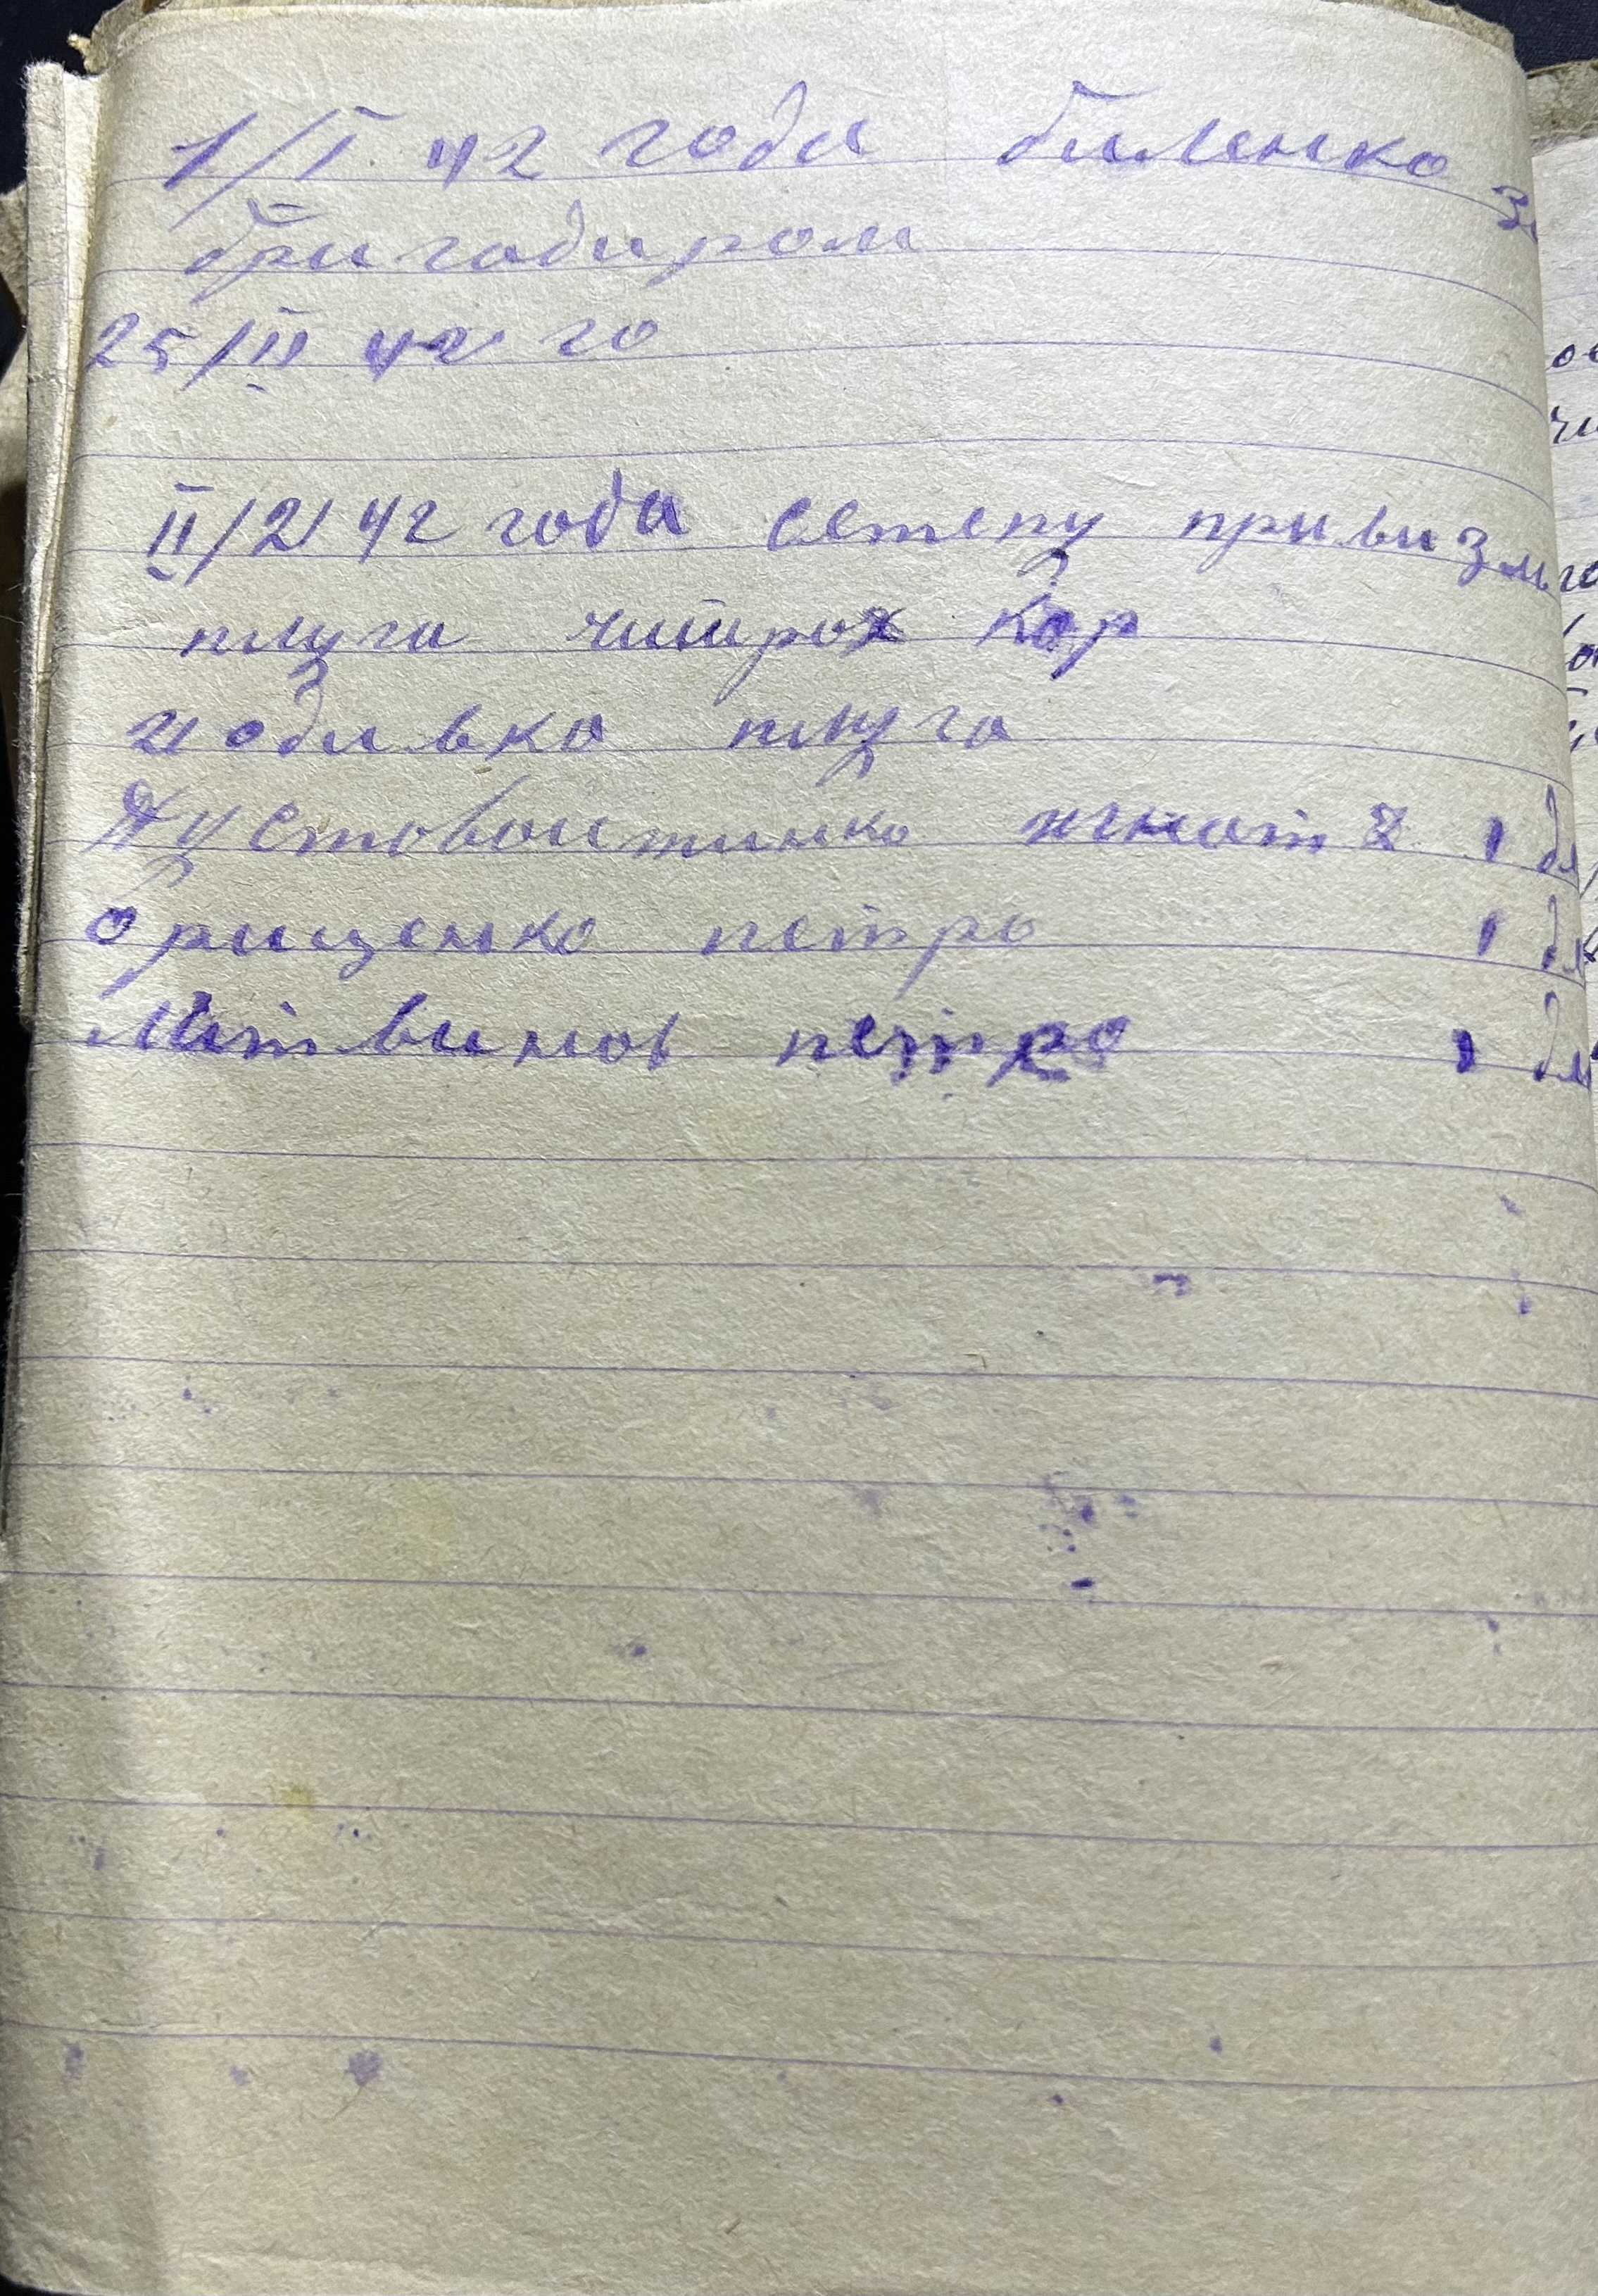 1/I 42 года биленко за
бригадиром
25/II 42 го
II/2 42 года степу привизли
плуга читирох кор
и одивка плуга
Пустовойтинко игнат 1 дн
Грищенко петро 1 дн
Литвинов петро 1 дн